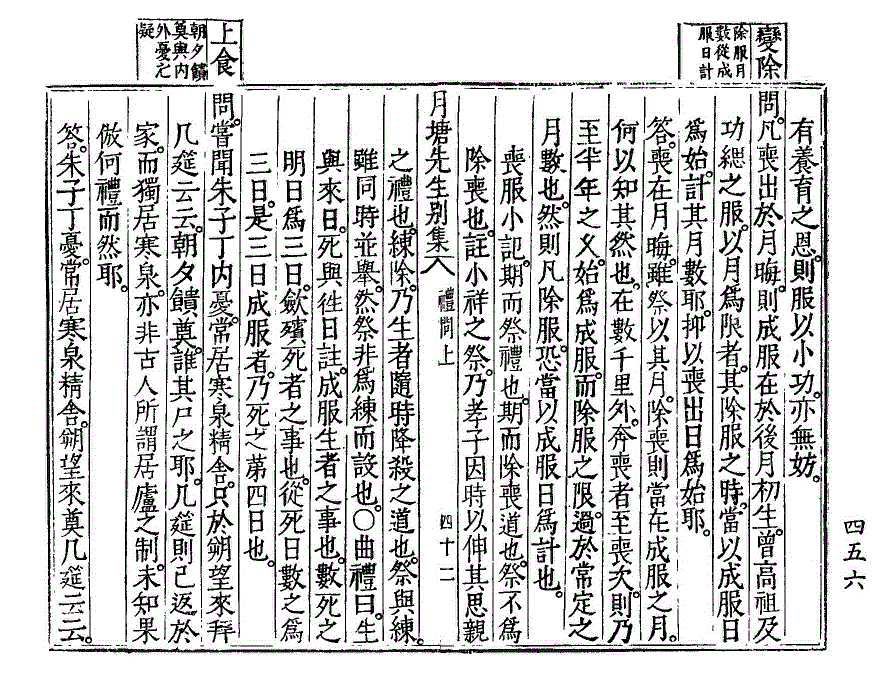 變除
除服月
數從成
服日計
有養育之恩。則服以小功。亦無妨。
問。凡喪出於月晦。則成服在於後月初生。曾高祖及
功緦之服。以月爲限者。其除服之時。當以成服日
爲始。計其月數耶。抑以喪出日爲始耶。
答。喪在月晦。雖祭以其月。除喪則當在成服之月。
何以知其然也。在數千里外。奔喪者至喪次。則乃
至半年之久。始爲成服。而除服之限。過於常定之
月數也。然則凡除服。恐當以成服日爲計也。
喪服小記。期而祭禮也。期而除喪道也。祭不爲
除喪也。註小祥之祭。乃孝子因時以伸其思親
月塘先生別集 八 禮問上 四十二
之禮也。練除。乃生者隨時降殺之道也。祭與練。
雖同時並擧。然祭非爲練而設也。○曲禮曰。生
與來日。死與徃日註。成服生者之事也。數死之
明日爲三日。歛殯死者之事也。從死日數之爲
三日。是三日成服者。乃死之苐四日也。
上食
朝夕饋
奠與内
外憂之
疑
問。嘗聞朱子丁内憂。常居寒泉精舍。只於朔望來拜
几筵云云。朝夕饋奠。誰其尸之耶。几筵則已返於
家。而獨居寒泉。亦非古人所謂居廬之制。未知果
倣何禮而然耶。
答。朱子丁憂。常居寒泉精舍。朔望來奠几筵云云。
四五六